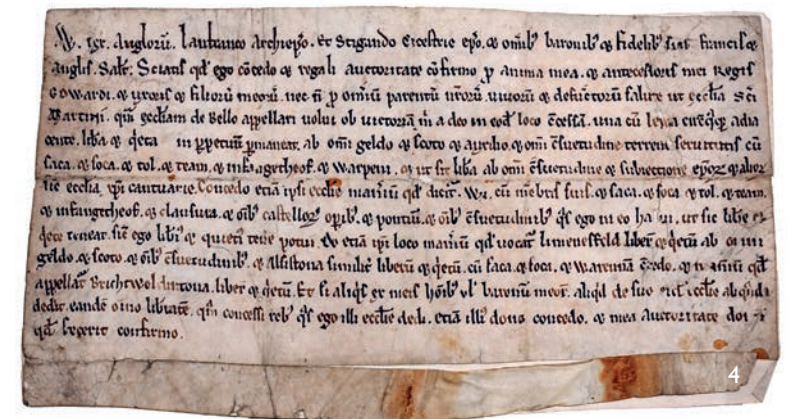 W. rex. Anglorū. Lanfranco Archiep̄o. et Stigando Cicestrie ep̄o. ⁊ omib; baronib; ⁊ fidelib; suis francis ⁊
anglis. Salt̄. Sciatis qd̄ ego c̄cedo ⁊ regali auctoritate c̄firmo p̄ anima mea. ⁊ antecessoris mei Regis
Edwardi. ⁊ uxoris ⁊ filiorū meorū. nec n̄ p̄ omiū parentū uiuorū ⁊ defūctorū salute ut ecclia Sc̄i
Martini. qm̄ eccliam de Bello appellari uolui ob uictoriā m̄ a deo in eod̄ loco c̄cessā. una cū leuga
lib̄a ⁊ q̄eta in ppetuū pmaneat. ab om̄i geldo ⁊ scoto ⁊ auxilio. ⁊ om̄i c̄suetudine terreni seruitutis cū
saca. ⁊ soca. ⁊ tol. ⁊ team. ⁊ infangetheof. ⁊ Warpeni. ⁊ ut sit lib̄a ab om̄i c̄suetudine ⁊ subiectione ep̄oꝝ
sic̄ ecclia xp̄i cantuarie. Concedo etiā ipsi ecclie maneriū qd̄ dicit̄. Wi. cū mēbris suis. ⁊ saca. ⁊ soca ⁊ tol. ⁊ team.
⁊ infangetheof. ⁊ clausura. ⁊ oib; castelloꝝ opib;. ⁊ pontiū. ⁊ oib; c̄suetudinib; q̄s ego in eo habui. ut sic lib̄e
q̄ete teneat. sic̄ ego lib̄i ⁊ quieti tene potui. Do etiā ipi loco maneriū qd̄ uocat̄ limenesfeld liber ⁊ q̄etū ab om̄i
geldo. ⁊ scoto. ⁊ oib; c̄suetudinib;. ⁊ Alsistona similit̄ liberū ⁊ q̄etū. cū saca. ⁊ soca. ⁊
appellat̄ Brichtwoldintona. liber ⁊ q̄etū. Et si aliq̄s ex meis hōib; ul̄ baronū meoꝝ. aliqd̄ de suo ecclie
dedit. eandē oīno libtatē. qm̄ concessi reb; q̄s ego illi ecclie dedi. etiā illi; donis concedo. ⁊ mea auctoritate
qd̄ fecerit confirmo.
4